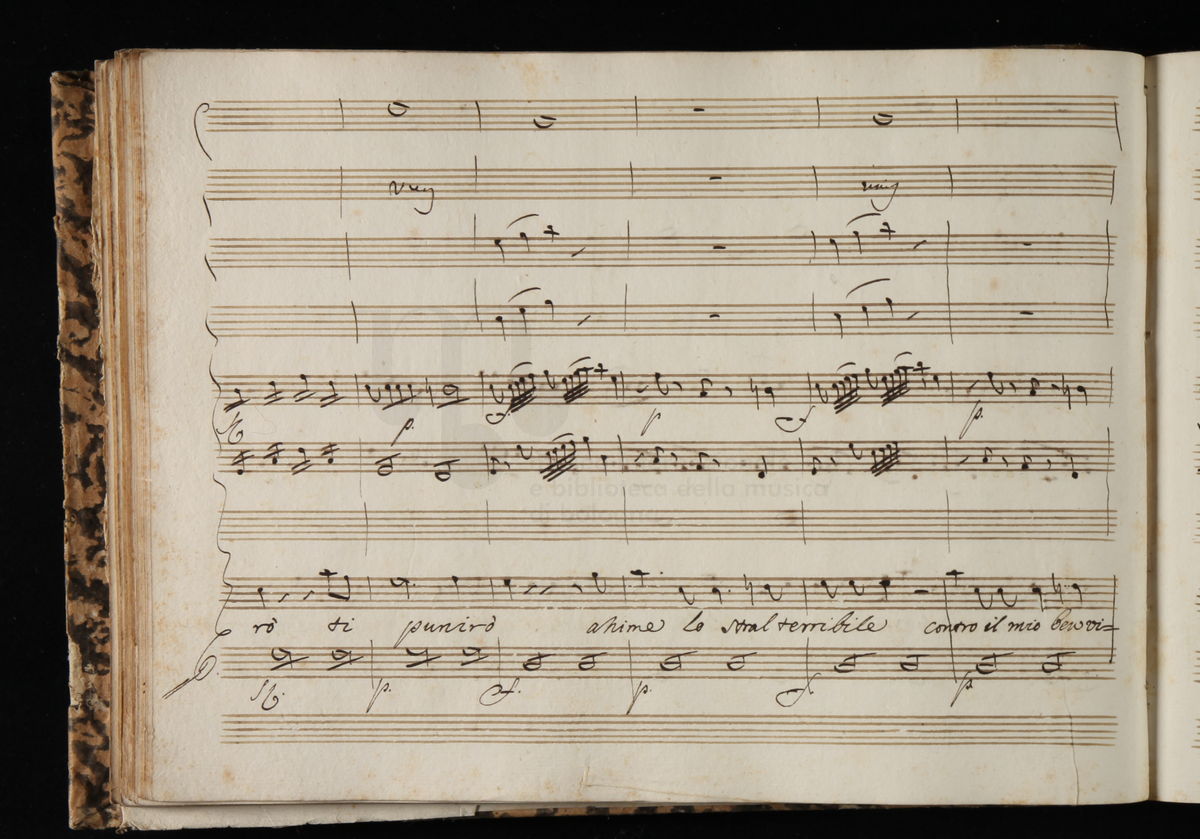 unis
unis
p.
f.
p
f
p.
rò ti punirò ahime lo stral terribile contro il mio ben vi=
p.
f.
p.
f.
p.
e biblioteca della musica
di bologna